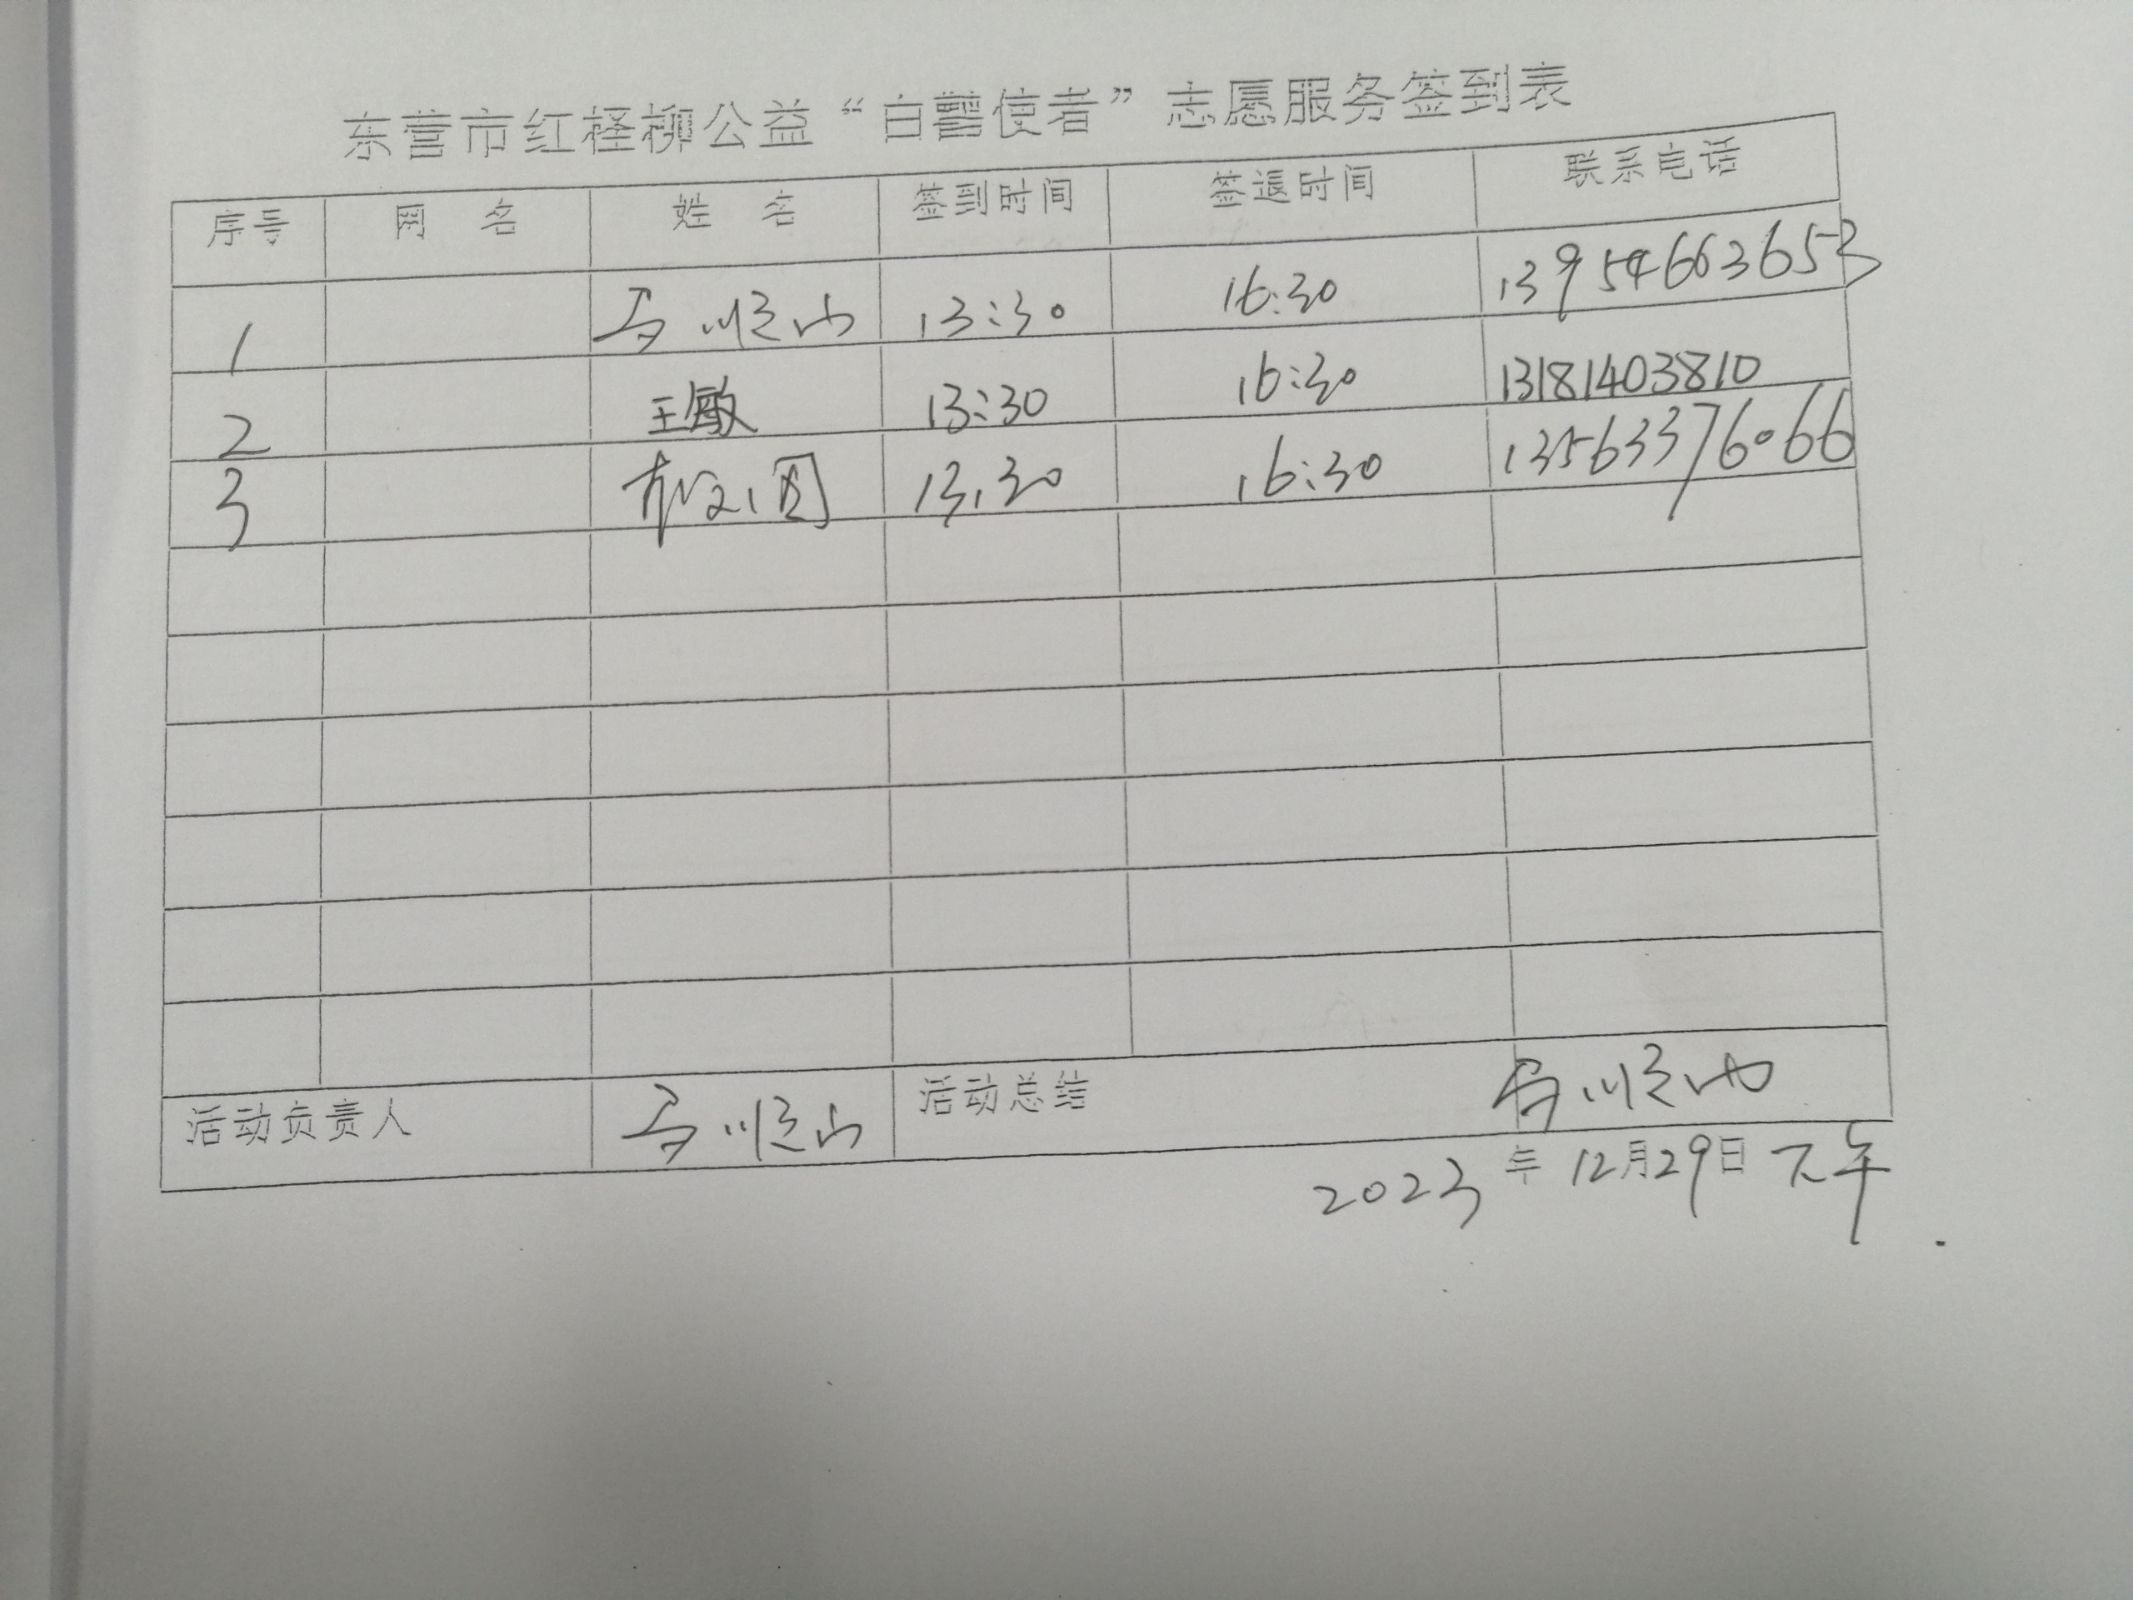 东营市红柽柳公益“白鹭使者”志愿服务签到表
序号 网 名 姓 名 签到时间 签退时间 联系电话
1 马顺山 13:30 16:30 13954663653
2 王敏 13:30 16:30 13181403810
3 13:30 16:30 13563376066
活动负责人 马顺山 活动总结 马顺山
2023年12月29日下午